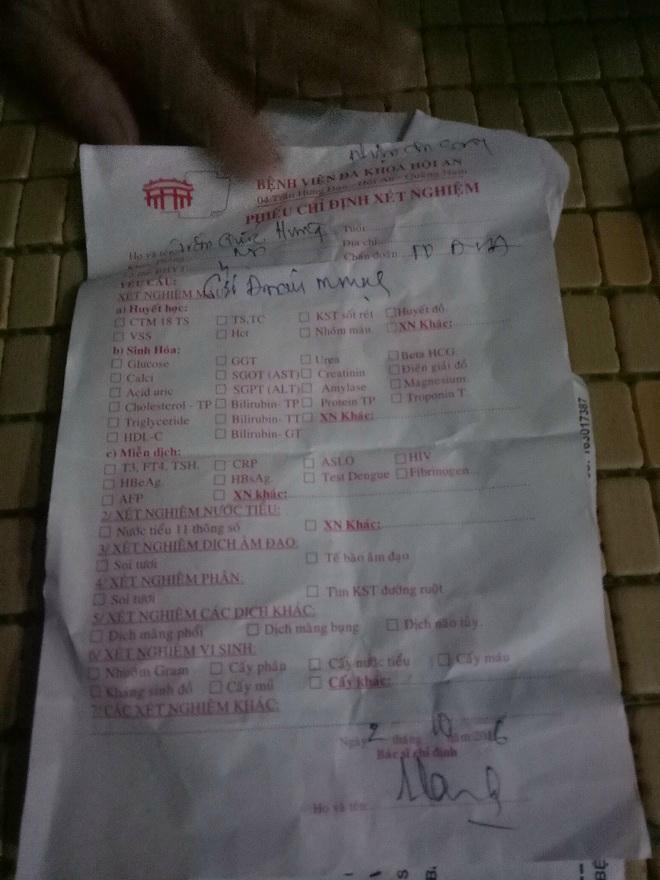 BỆNH VIỆN ĐA KHOA HỘI AN
04 Trần Hưng Đạo - Hội An - Quảng Nam
PHIẾU CHỈ ĐỊNH XÉT NGHIỆM
Họ và tên: Trần Quốc Hưng Tuổi:
Địa chỉ:
Chẩn đoán:
YÊU CẦU:
XÉT NGHIỆM MÁU
a) Huyết học:
CTM 18 TS TS,TC KST sốt rét Huyết đồ
VSS Hct Nhóm máu XN Khác:
b) Sinh Hóa:
Glucose GGT Urea Beta HCG
Calci SGOT (AST) Creatinin Điện giải đồ
Acid uric SGPT (ALT) Amylase Magnesium
Cholesterol - TP Bilirubin- TP Protein TP Troponin T
Triglyceride Bilirubin- TT XN Khác:
HDL-C Bilirubin- GT
c) Miễn dịch:
T3, FT4, TSH. CRP ASLO HIV
HBeAg. HBsAg. Test Dengue Fibrinogen
AFP XN khác:
2/ XÉT NGHIỆM NƯỚC TIỂU:
Nước tiểu 11 thông số XN Khác:
3/ XÉT NGHIỆM DỊCH ÂM ĐẠO:
Soi tươi Tế bào âm đạo
4/ XÉT NGHIỆM PHÂN:
Soi tươi Tìm KST đường ruột
5/ XÉT NGHIỆM CÁC DỊCH KHÁC:
Dịch màng phổi Dịch màng bụng Dịch não tủy.
6/ XÉT NGHIỆM VI SINH:
Nhuộm Gram Cấy phân Cấy nước tiểu Cấy máu
Kháng sinh đồ Cấy mủ Cấy khác:
7/ CÁC XÉT NGHIỆM KHÁC:
Ngày 2 tháng 10 năm 2016
Bác sĩ chỉ định
Họ và tên: